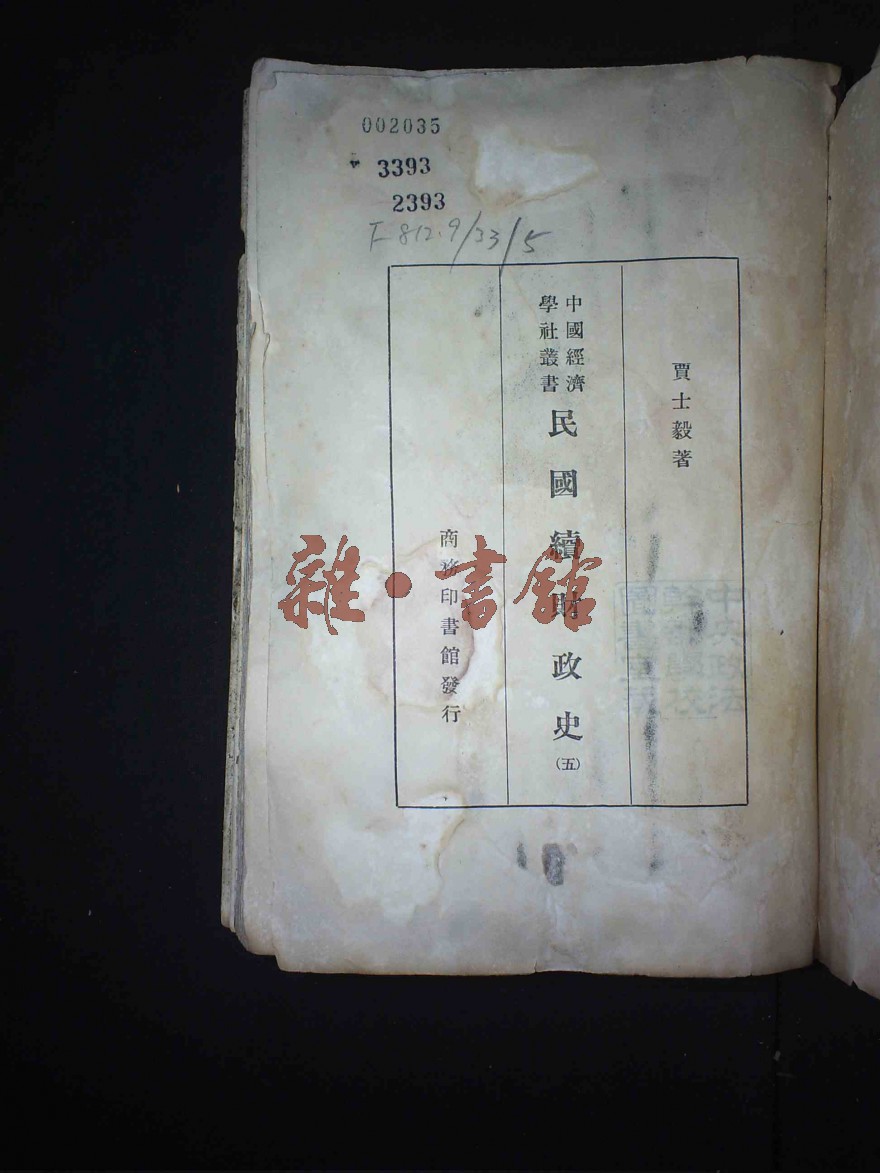 002035
3393
2393
F-812.9/33/5
賈士毅著
中國經濟
學社叢書
民國續財政史
(五)
商務印書館發行
雜·書館